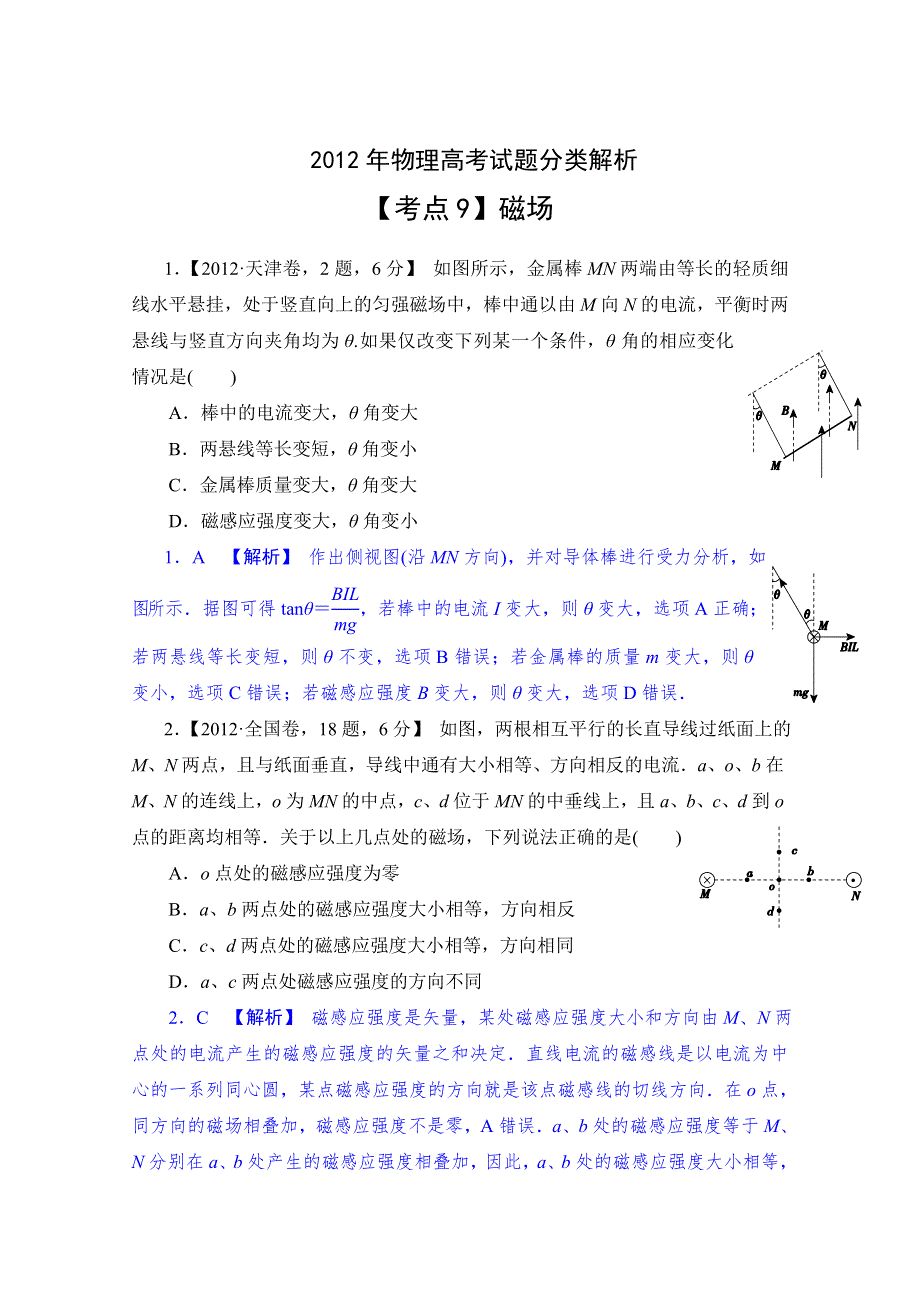 2012 年物理高考试题分类解析
【考点 9】磁场
1．【2012·天津卷，2 题，6 分】 如图所示，金属棒 MN 两端由等长的轻质细
线水平悬挂，处于竖直向上的匀强磁场中，棒中通以由 M 向 N 的电流，平衡时两
悬线与竖直方向夹角均为 θ.如果仅改变下列某一个条件，θ 角的相应变化
情况是(　　)
A．棒中的电流变大，θ 角变大
B．两悬线等长变短，θ 角变小
C．金属棒质量变大，θ 角变大
D．磁感应强度变大，θ 角变小
θ
θ
B
N
M
1．A　【解析】 作出侧视图(沿 MN 方向)，并对导体棒进行受力分析，如
图所示．据图可得 tanθ＝BIL/mg，若棒中的电流 I 变大，则 θ 变大，选项 A 正确；
若两悬线等长变短，则 θ 不变，选项 B 错误；若金属棒的质量 m 变大，则 θ
变小，选项 C 错误；若磁感应强度 B 变大，则 θ 变大，选项 D 错误．
θ
θ
M
BIL
mg
2．【2012·全国卷，18 题，6 分】 如图，两根相互平行的长直导线过纸面上的
M、N 两点，且与纸面垂直，导线中通有大小相等、方向相反的电流．a、o、b 在
M、N 的连线上，o 为 MN 的中点，c、d 位于 MN 的中垂线上，且 a、b、c、d 到 o
点的距离均相等．关于以上几点处的磁场，下列说法正确的是(　　)
A．o 点处的磁感应强度为零
B．a、b 两点处的磁感应强度大小相等，方向相反
C．c、d 两点处的磁感应强度大小相等，方向相同
D．a、c 两点处磁感应强度的方向不同
c
a
b
M
o
N
d
2．C　【解析】 磁感应强度是矢量，某处磁感应强度大小和方向由 M、N 两
点处的电流产生的磁感应强度的矢量之和决定．直线电流的磁感线是以电流为中
心的一系列同心圆，某点磁感应强度的方向就是该点磁感线的切线方向．在 o 点，
同方向的磁场相叠加，磁感应强度不是零，A 错误．a、b 处的磁感应强度等于 M、
N 分别在 a、b 处产生的磁感应强度相叠加，因此，a、b 处的磁感应强度大小相等，